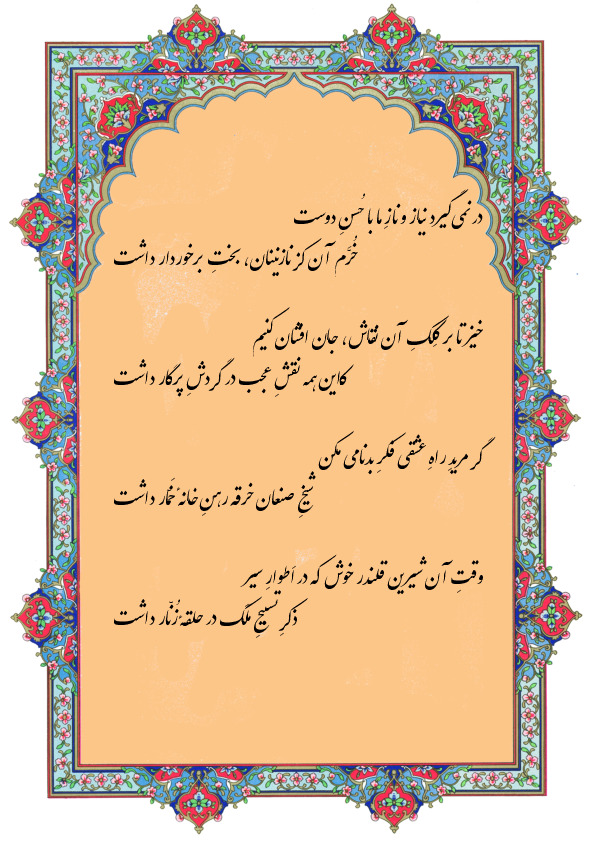 در نمی‌گیرد نیاز و نازِ ما با حُسنِ دوست
خُرَّم آن کز نازنینان، بختِ برخوردار داشت
خیز تا بر کِلکِ آن نقاش، جان افشان کنیم
کاین همه نقشِ عجب در گردشِ پرگار داشت
گر مریدِ راهِ عشقی فکرِ بدنامی مکن
شیخِ صنعان خرقه رهنِ خانهٔ خَمّار داشت
وقتِ آن شیرین قلندر خوش که در اَطوارِ سیر
ذکرِ تسبیحِ مَلَک در حلقهٔ زُنّار داشت